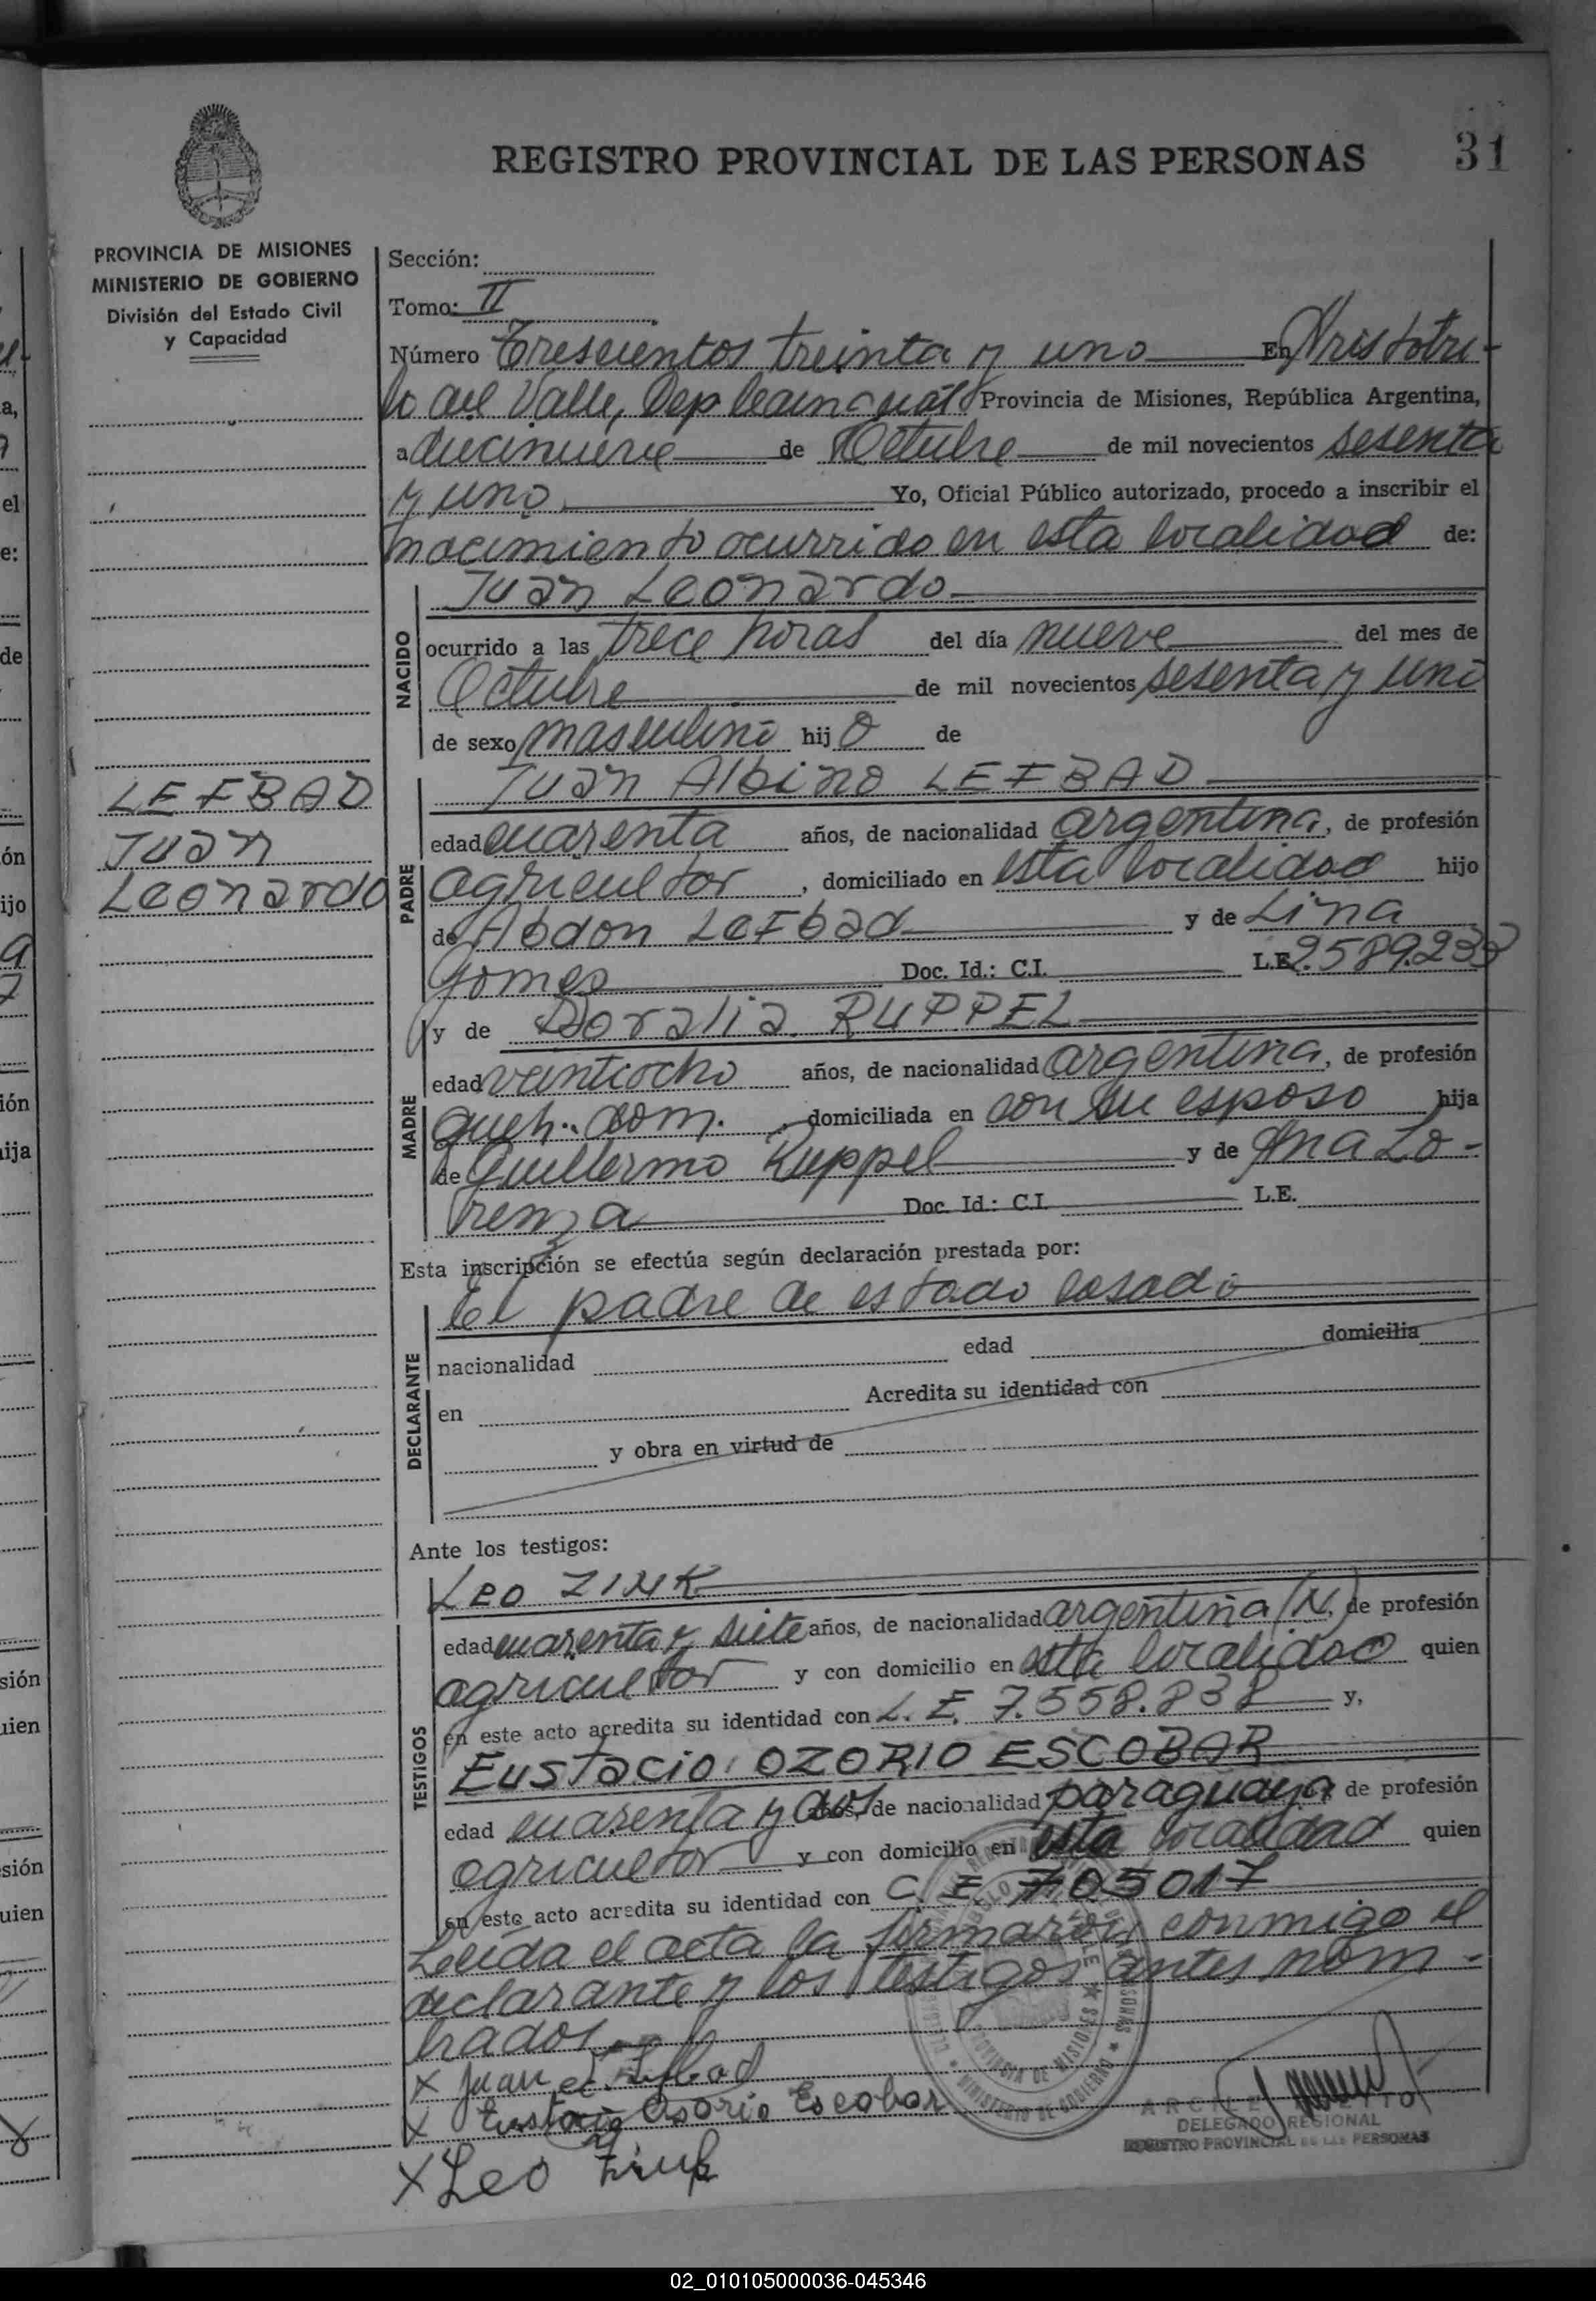 REGISTRO PROVINCIAL DE LAS PERSONAS
31
PROVINCIA DE MISIONES
MINISTERIO DE GOBIERNO
División del Estado Civil
y Capacidad
LEFBAD
Juan
Leonardo
Sección:
Tomo: II
Número Trescientos treinta y uno En Aristobu-
lo del Valle, Dep Cainguás Provincia de Misiones, República Argentina,
a diecinueve de Octubre de mil novecientos sesenta
y uno Yo, Oficial Público autorizado, procedo a inscribir el
nacimiento ocurrido en esta localidad de:
NACIDO
Juan Leonardo
ocurrido a las trece horas del día nueve del mes de
Octubre de mil novecientos sesenta y uno
de sexo masculino hij o de
PADRE
Juan Albino LEFBAD
edad cuarenta años, de nacionalidad argentina, de profesión
agricultor, domiciliado en esta localidad hijo
de Abdon Lefbad y de Lina
Gomes Doc. Id.: C.I. L.E. 2.589.233
MADRE
y de Doralia RUPPEL
edad veintiocho años, de nacionalidad argentina, de profesión
queh. dom. domiciliada en con su esposo hija
de Guillermo Ruppel y de Ana Lo-
renza Doc. Id.: C.I. L.E.
Esta inscripción se efectúa según declaración prestada por:
DECLARANTE
El padre de estado casado
nacionalidad edad domicilia
en Acredita su identidad con
y obra en virtud de
Ante los testigos:
TESTIGOS
Leo ZINK
edad cuarenta y siete años, de nacionalidad argentina (N), de profesión
agricultor y con domicilio en esta localidad quien
en este acto acredita su identidad con L. E. 7.558.838 y,
Eustacio OZORIO ESCOBAR
edad cuarenta y dos años, de nacionalidad paraguaya de profesión
agricultor y con domicilio en esta localidad quien
en este acto acredita su identidad con C. E. 705017
Leída el acta la firmaron conmigo el
declarante y los testigos antes nom-
brados
x Juan Lefbad
x Eustacio Osorio Escobar
x Leo Zink
PROVINCIA DE MISIONES
MINISTERIO DE GOBIERNO
DELEGADO REGIONAL
REGISTRO PROVINCIAL DE LAS PERSONAS
02_010105000036-045346